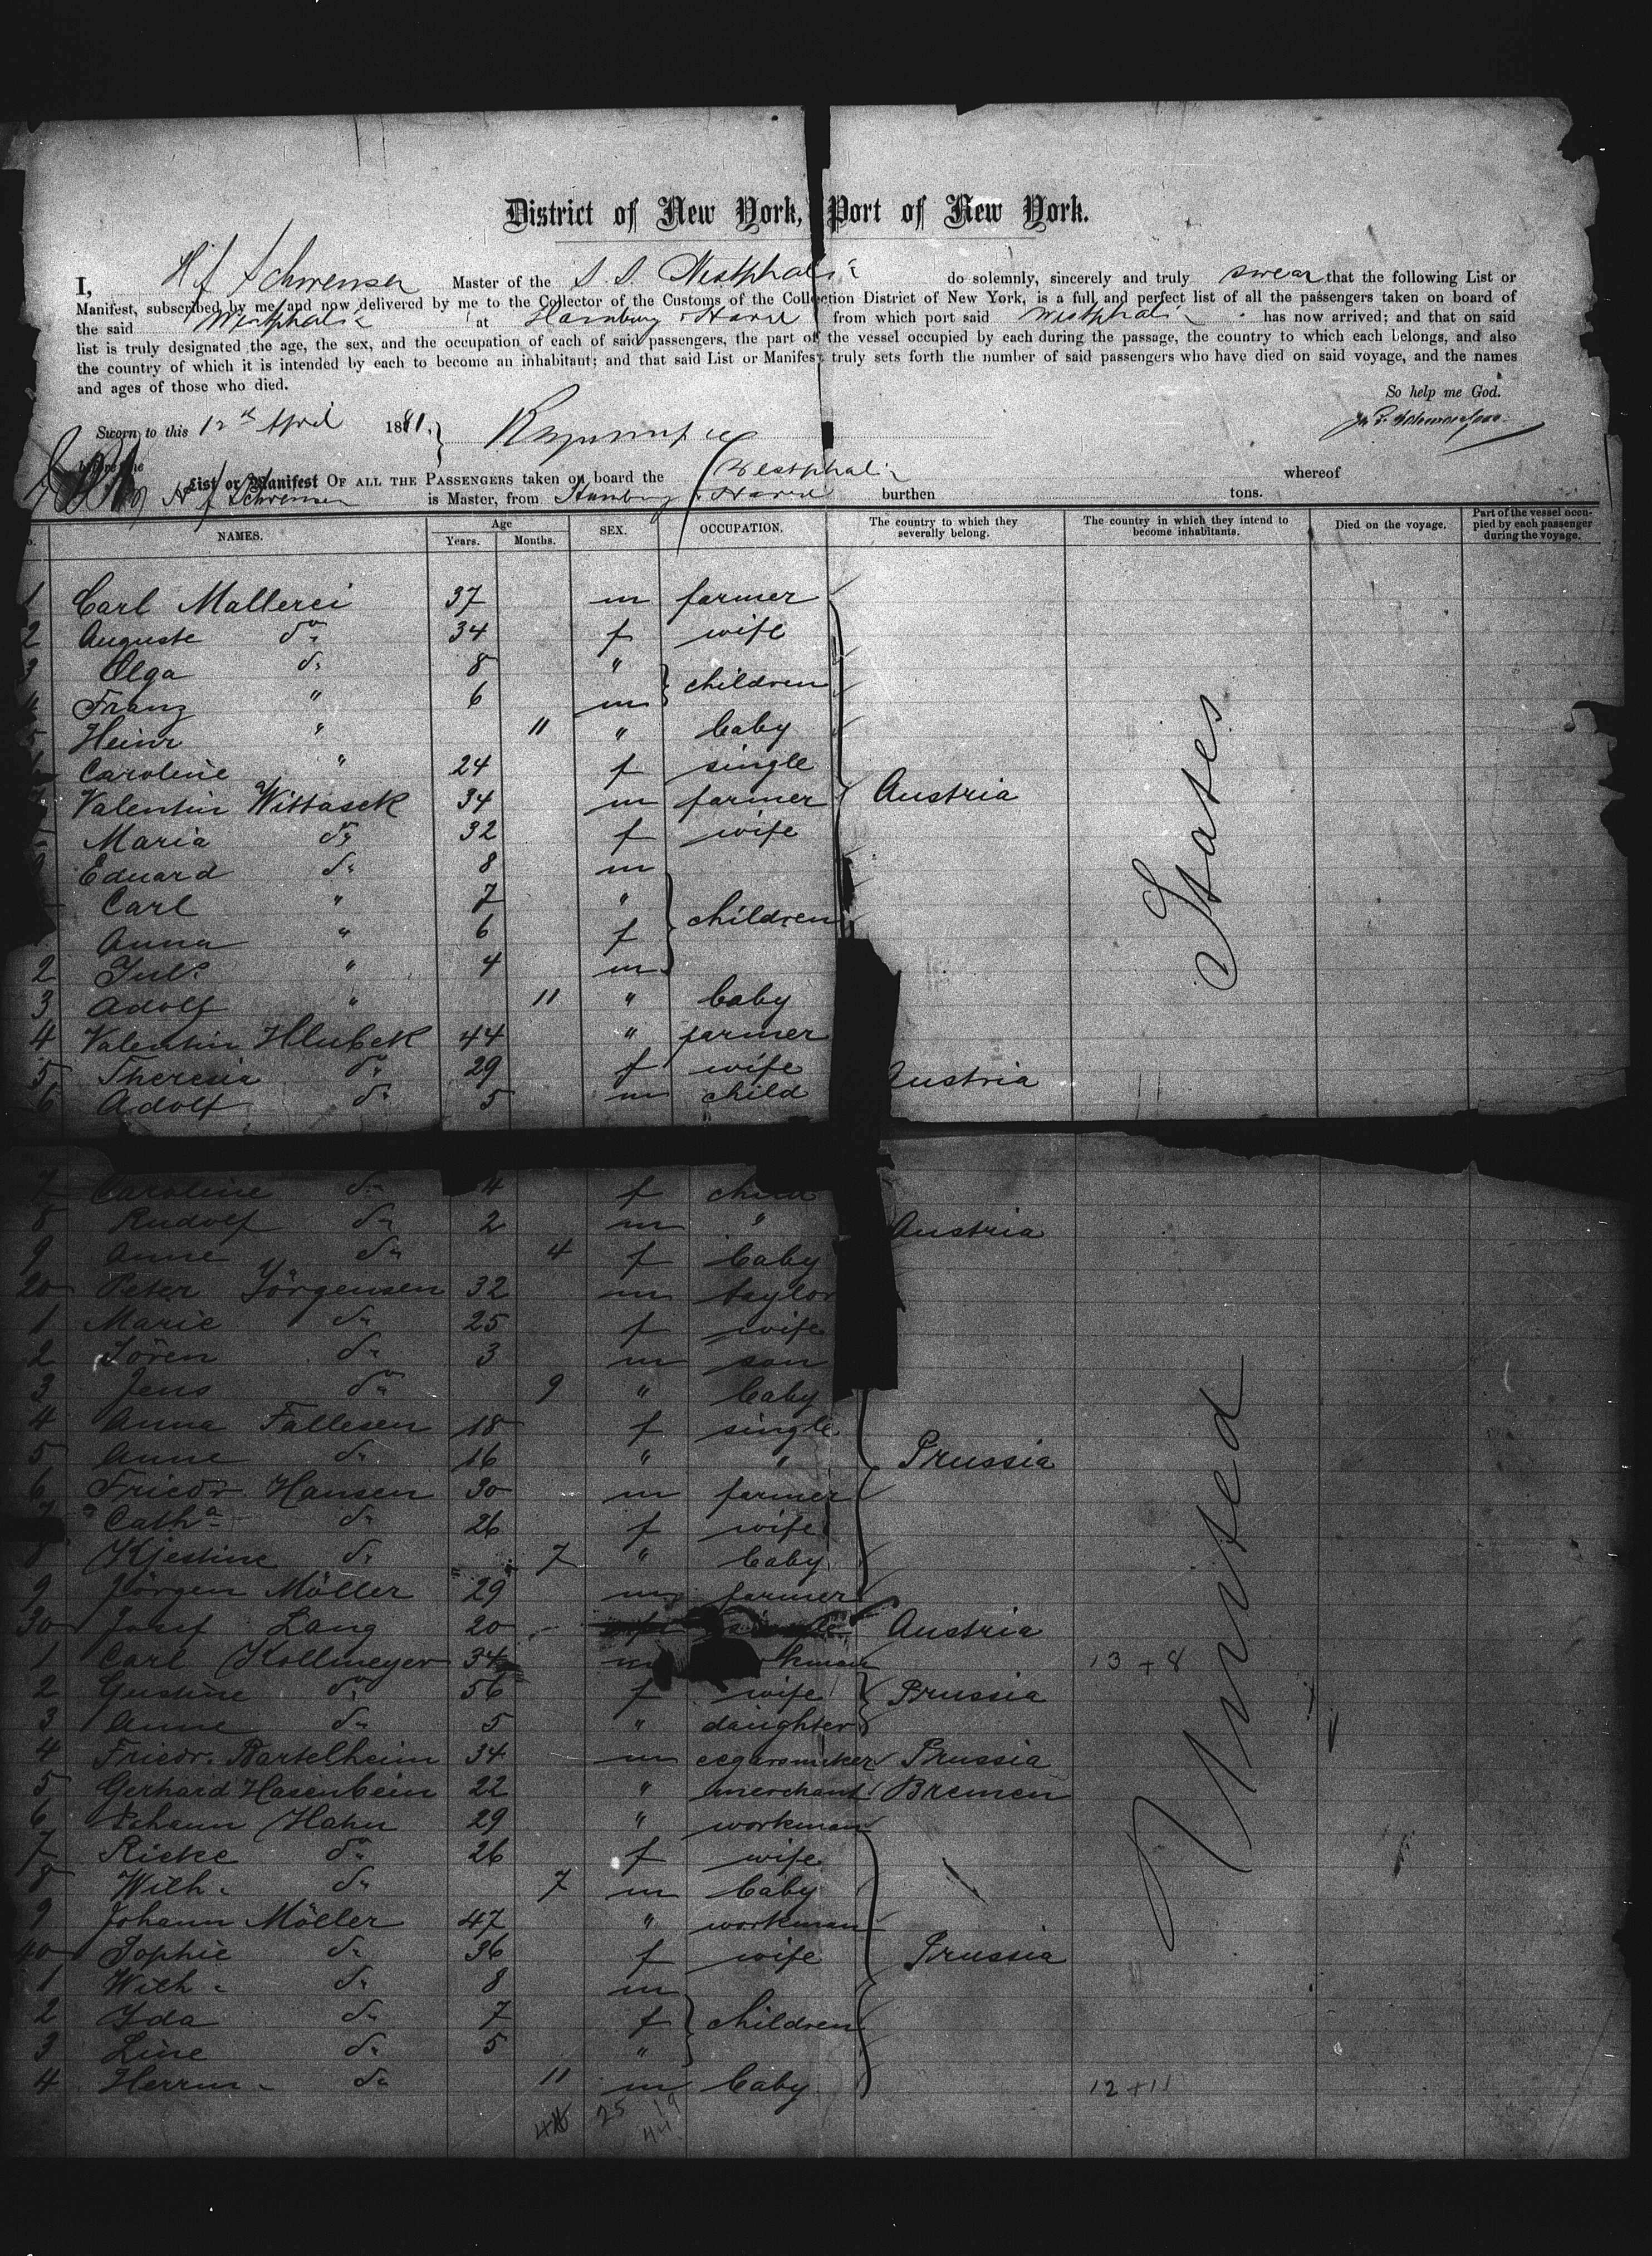 District of New York, Port of New York.
I, H. F. Schwensen Master of the S. S. Westphalia do solemnly, sincerely and truly swear that the following List or
Manifest, subscribed by me, and now delivered by me to the Collector of the Customs of the Collection District of New York, is a full and perfect list of all the passengers taken on board of
the said Westphalia at Hamburg & Havre from which port said Westphalia has now arrived; and that on said
list is truly designated the age, the sex, and the occupation of each of said passengers, the part of the vessel occupied by each during the passage, the country to which each belongs, and also
the country of which it is intended by each to become an inhabitant; and that said List or Manifest truly sets forth the number of said passengers who have died on said voyage, and the names
and ages of those who died.
So help me God.
Sworn to this 12th April 1881.
before me
List or Manifest OF ALL THE PASSENGERS taken on board the Westphalia whereof
H. F. Schwensen is Master, from Hamburg & Havre burthen tons.
NAMES. Age Years. Months. SEX. OCCUPATION. The country to which they severally belong. The country in which they intend to become inhabitants. Died on the voyage. Part of the vessel occupied by each passenger during the voyage.
1 Carl Mallerei 37 m farmer
2 Auguste do 34 f wife
3 Olga do 8 "
children
4 Franz " 6 m
5 Heinr " 11 " baby
Caroline " 24 f single
Valentin Wittasek 34 m farmer Austria
Maria do 32 f wife
Eduard do 8 m
Carl " 7 "
children
Anna " 6 f
2 Juls " 4 m
3 Adolf " 11 " baby
4 Valentin Hlubek 44 " farmer
5 Theresia do 29 f wife Austria
6 Adolf do 5 m child
7 Caroline do 4 f child
8 Rudolf do 2 m " Austria
9 Anne do 4 f baby
20 Peter Jörgensen 32 m taylor
1 Marie do 25 f wife
2 Sören do 3 m son
3 Jens do 9 " baby
4 Anna Fallesen 18 f single
5 Anne do 16 " " Prussia
6 Friedr. Hansen 30 m farmer
7 Catha do 26 f wife
8 Kjestine do 7 " baby
9 Jörgen Möller 29 m farmer
30 Josef Lang 20 Austria
1 Carl Kollmeyer 34 m kman 13 + 8
2 Gustine do 56 f wife Prussia
3 Anne do 5 " daughter
4 Friedr. Bartelheim 34 m cegarsmaker Prussia
5 Gerhard Hasenbein 22 " merchant Bremen
6 Johann Hahn 29 " workman
7 Rieke do 26 f wife
8 Wilh. do 7 m baby
9 Johann Möller 47 " workman
40 Sophie do 36 f wife Prussia
1 Wilh. do 8 m
2 Ida do 7 f children
3 Line do 5 "
4 Herrm. do 11 m baby 12 + 11
25 19
44
United States